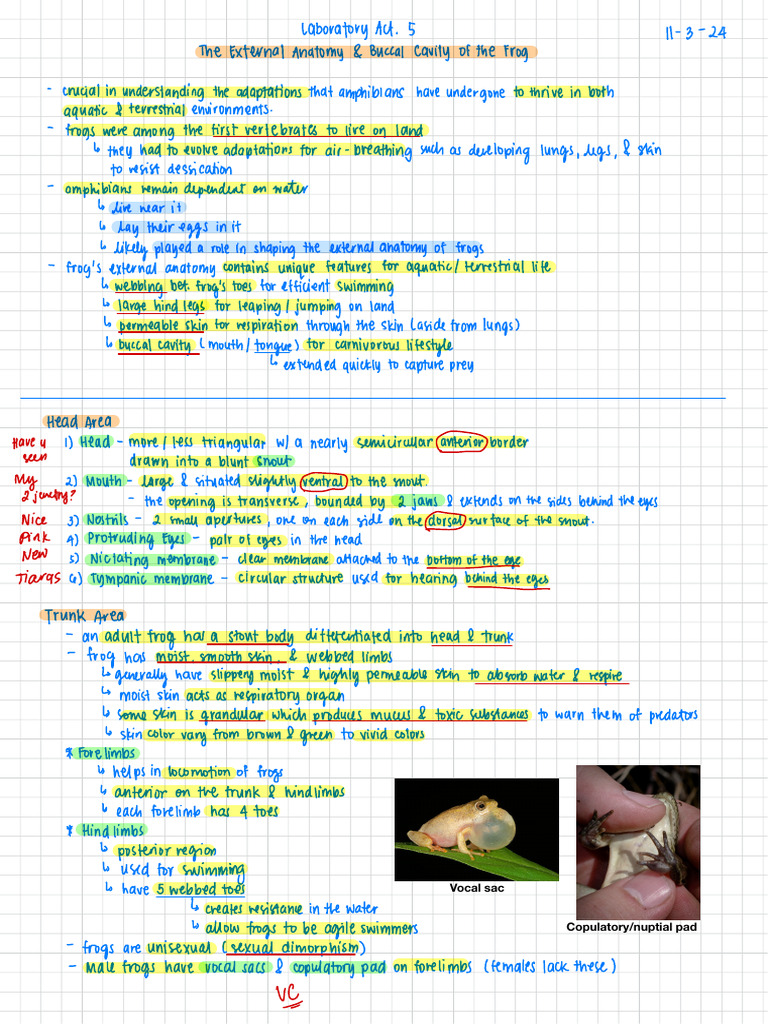 Laboratory Act. 5
11-3-24
The External Anatomy & Buccal Cavity of the Frog
- crucial in understanding the adaptations that amphibians have undergone to thrive in both
aquatic & terrestrial environments.
- frogs were among the first vertebrates to live on land
↳ they had to evolve adaptations for air-breathing such as developing lungs, legs, & skin
to resist dessication
- amphibians remain dependent on water
↳ live near it
↳ lay their eggs in it
↳ likely played a role in shaping the external anatomy of frogs
- frog's external anatomy contains unique features for aquatic/terrestrial life
↳ webbing bet. frog's toes for efficient swimming
↳ large hind legs for leaping/jumping on land
↳ permeable skin for respiration through the skin (aside from lungs)
↳ buccal cavity (mouth/tongue) for carnivorous lifestyle
↳ extended quickly to capture prey
Head Area
Have u 1) Head - more/less triangular w/ a nearly semicircular anterior border
seen drawn into a blunt snout
My 2) Mouth - large & situated slightly ventral to the snout.
2 jewelry? - the opening is transverse, bounded by 2 jaws & extends on the sides behind the eyes
Nice 3) Nostrils - 2 small apertures, one on each side on the dorsal surface of the snout.
Pink 4) Protruding Eyes - pair of eyes in the head
New 5) Nictating membrane - clear membrane attached to the bottom of the eye
Tiaras 6) Tympanic membrane - circular structure used for hearing behind the eyes
Trunk Area
- an adult frog has a stout body differentiated into head & trunk
- frog has moist, smooth skin, & webbed limbs
↳ generally have slippery moist & highly permeable skin to absorb water & respire
↳ moist skin acts as respiratory organ
↳ some skin is grandular which produces mucus & toxic substances to warn them of predators
↳ skin color vary from brown & green to vivid colors
* Forelimbs
↳ helps in locomotion of frogs
↳ anterior on the trunk & hindlimbs
↳ each forelimb has 4 toes
* Hindlimbs
↳ posterior region
↳ used for swimming
↳ have 5 webbed toes
↳ creates resistance in the water
↳ allow frogs to be agile swimmers
Vocal sac
Copulatory/nuptial pad
- frogs are unisexual (sexual dimorphism)
- Male frogs have vocal sacs & copulatory pad on forelimbs (females lack these)
VC